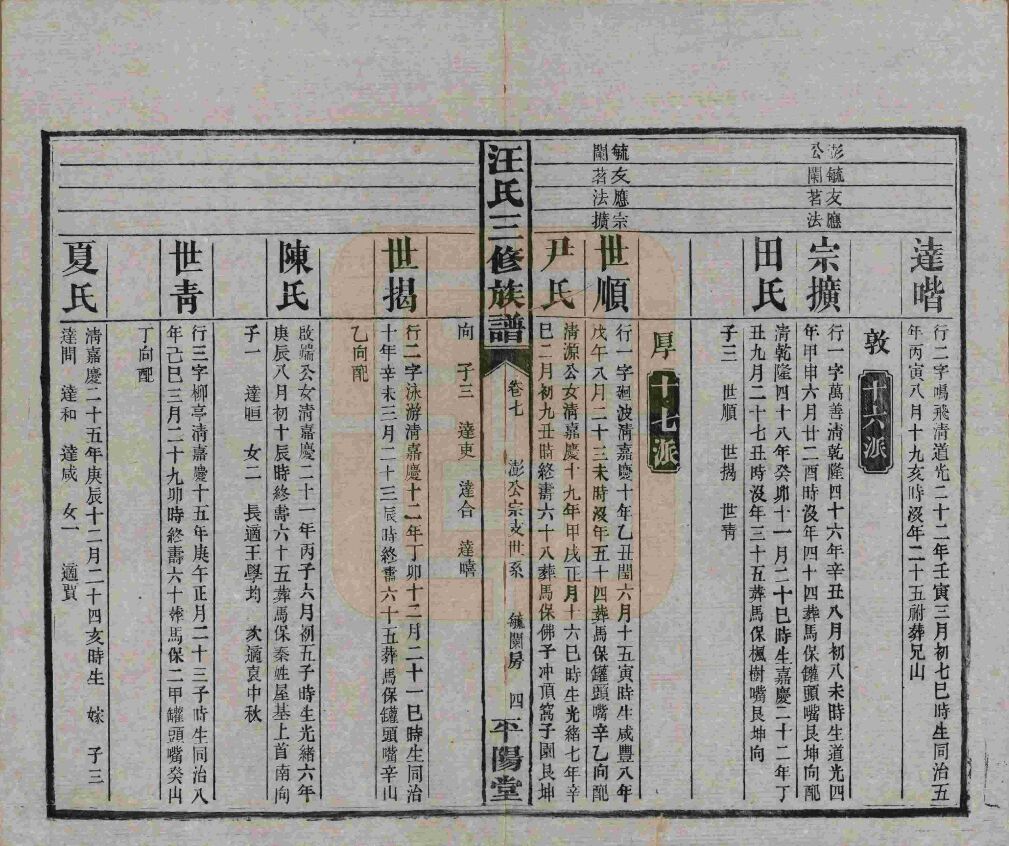 達喈
行二字鳴飛淸道光二十二年壬寅三月初七巳時生同治五
年丙寅八月十九亥時沒年二十五祔葬兄山
敦
十六派
彭毓友應
公闌茗法
宗擴
行一字萬善淸乾隆四十六年辛丑八月初八未時生道光四
年甲申六月廿二酉時沒年四十四葬馬保罐頭嘴艮坤向配
田氏
淸乾隆四十八年癸卯十一月二十巳時生嘉慶二十二年丁
丑九月二十七丑時沒年三十五葬馬保楓樹嘴艮坤向
子三 世順 世揭 世靑
厚
十七派
毓友應宗
闌茗法擴
世順
行一字廻波淸嘉慶十年乙丑閏六月十五寅時生咸豐八年
戊午八月二十三未時沒年五十四葬馬保罐頭嘴辛乙向配
尹氏
淸源公女淸嘉慶十九年甲戌正月十六巳時生光緒七年辛
巳二月初九丑時終壽六十八葬馬保佛子冲頂窩子園艮坤
汪氏三修族譜
卷七
澎公宗支世系
毓闌房
四
平陽堂
向 子三 達吏 達合 達嘻
世揭
行二字泳游淸嘉慶十二年丁卯十二月二十一巳時生同治
十年辛未三月二十三辰時終壽六十五葬馬保罐頭嘴辛山
乙向配
陳氏
啟端公女淸嘉慶二十一年丙子六月初五子時生光緒六年
庚辰八月初十辰時終壽六十五葬馬保秦姓屋基上首南向
子一 達晅 女二 長適王學均 次適袁中秋
世靑
行三字柳亭淸嘉慶十五年庚午正月二十三子時生同治八
年己巳三月二十九卯時終壽六十葬馬保二甲罐頭嘴癸山
丁向配
夏氏
淸嘉慶二十五年庚辰十二月二十四亥時生 嫁 子三
達問 達和 達咸 女一 適賈